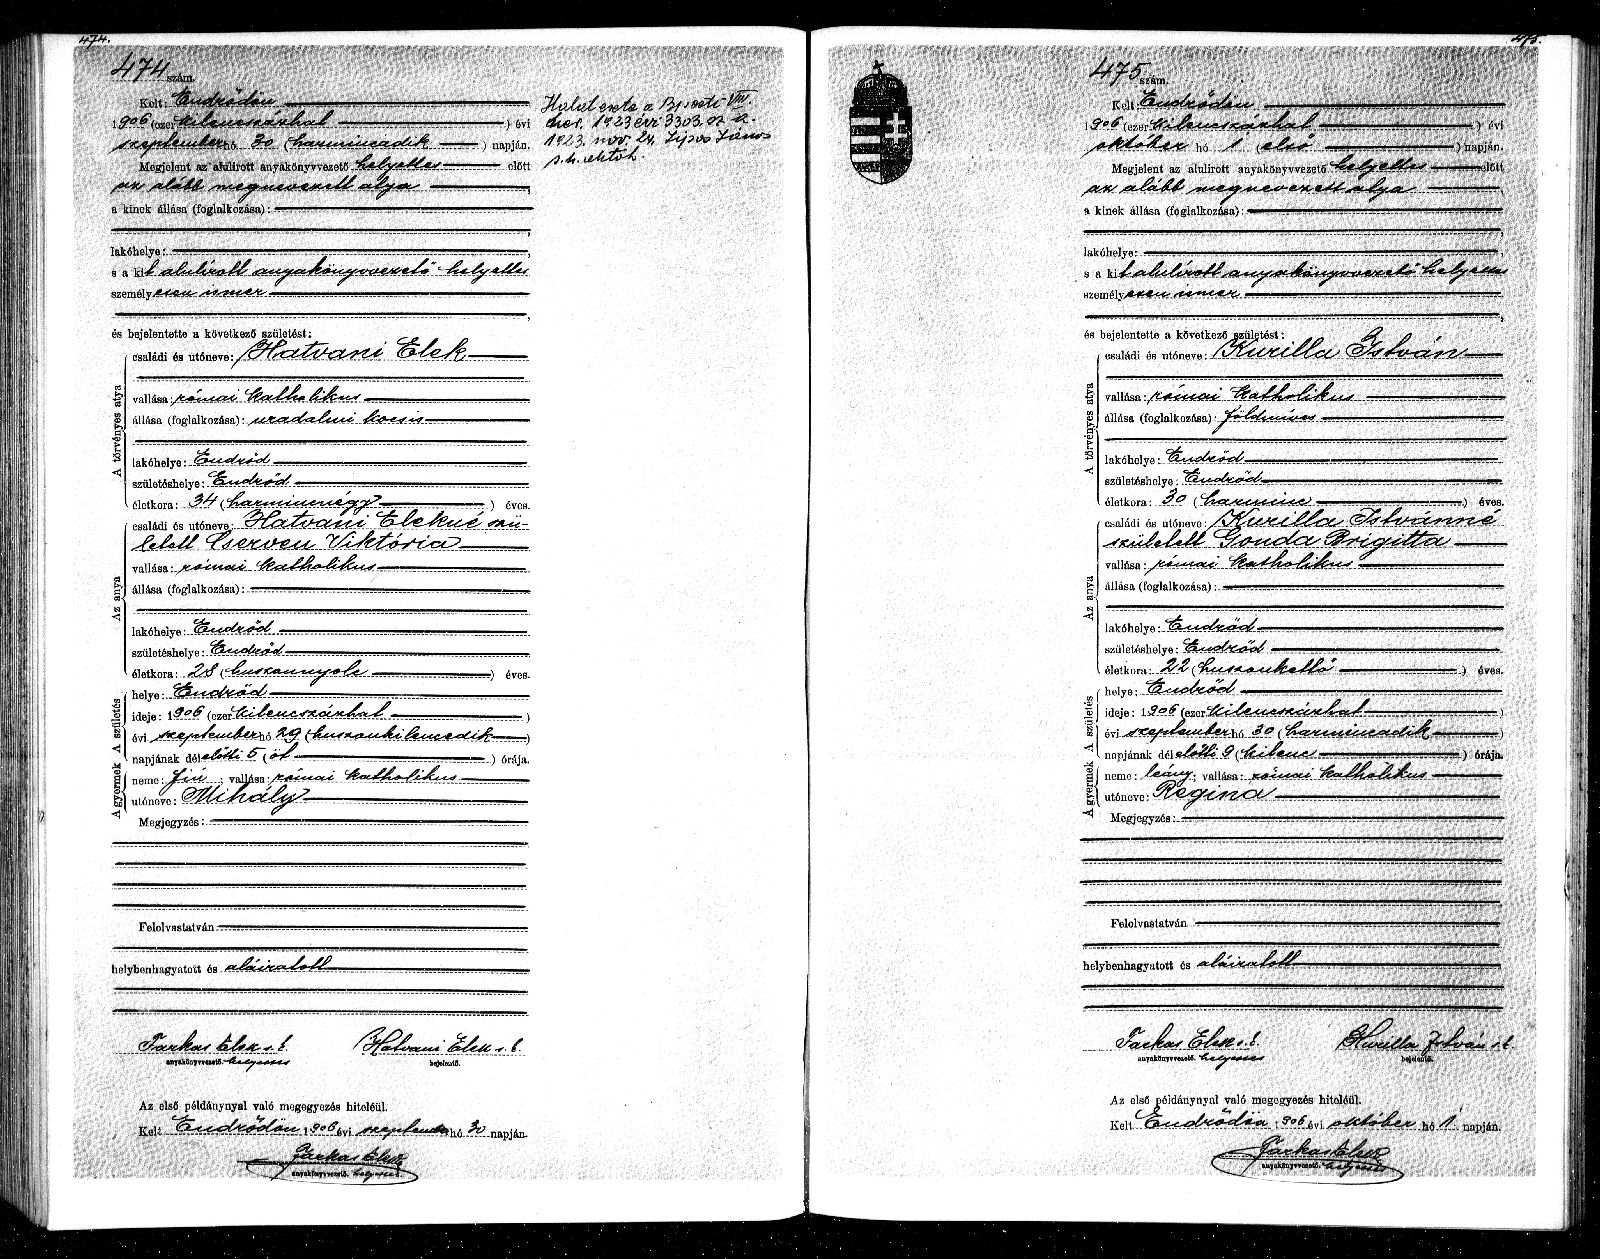 474.
474 szám.
Kelt: Endrődön
1906 (ezer kilencszázhat ) évi
szeptember hó 30 (harmincadik ) napján.
Megjelent az alulirott anyakönyvvezető helyettes előtt
az alább megnevezett atya
a kinek állása (foglalkozása):
lakóhelye:
s a kit alulírott anyakönyvvezető helyettes
személyesen ismer
és bejelentette a következő születést:
A törvényes atya
családi és utóneve: Hatvani Elek
vallása: római katholikus
állása (foglalkozása): uradalmi kocsis
lakóhelye: Endrőd
születéshelye: Endrőd
életkora: 34 (harmincnégy ) éves.
Az anya
családi és utóneve: Hatvani Elekné szü-
letett Cserven Viktória
vallása: római katholikus
állása (foglalkozása):
lakóhelye: Endrőd
születéshelye: Endrőd
életkora: 28 (huszonnyolc ) éves.
A születés
helye: Endrőd
ideje: 1906 (ezer kilencszázhat )
évi szeptember hó 29 (huszonkilencedik )
napjának délelőtti 5 (öt ) órája.
A gyermek
neme: fiú; vallása: római katholikus
utóneve: Mihály
Megjegyzés:
Felolvastatván
helybenhagyatott és aláiratott
Farkas Elek s.k. Hatvani Elek s.k.
anyakönyvvezető. helyettes bejelentő.
Az első példánynyal való megegyezés hiteléül.
Kelt Endrődön 1906 évi szeptember hó 30 napján.
Farkas Elek
anyakönyvvezető. helyettes
Halal esete a Bpesti VIII.
ker. 1923 évi 3303. sz. a.
1923. nov. 24.
s. k. aktok.
475.
475 szám.
Kelt: Endrődön
1906 (ezer kilencszázhat ) évi
október hó 1 (első ) napján.
Megjelent az alulirott anyakönyvvezető helyettes előtt
az alább megnevezett atya
a kinek állása (foglalkozása):
lakóhelye:
s a kit alulírott anyakönyvvezető helyettes
személyesen ismer
és bejelentette a következő születést:
A törvényes atya
családi és utóneve: Kurilla István
vallása: római katholikus
állása (foglalkozása): földmíves
lakóhelye: Endrőd
születéshelye: Endrőd
életkora: 30 (harminc ) éves.
Az anya
családi és utóneve: Kurilla Istvánné
született Gonda Brigitta
vallása: római katholikus
állása (foglalkozása):
lakóhelye: Endrőd
születéshelye: Endrőd
életkora: 22 (huszonkettő ) éves.
A születés
helye: Endrőd
ideje: 1906 (ezer kilencszázhat )
évi szeptember hó 30 (harmincadik )
napjának délelőtti 9 (kilenc ) órája.
A gyermek
neme: leány; vallása: római katholikus
utóneve: Regina
Megjegyzés:
Felolvastatván
helybenhagyatott és aláiratott
Farkas Elek s.k. Kurilla István s.k.
anyakönyvvezető. helyettes bejelentő.
Az első példánynyal való megegyezés hiteléül.
Kelt Endrődön 1906 évi október hó 1 napján.
Farkas Elek
anyakönyvvezető. helyettes